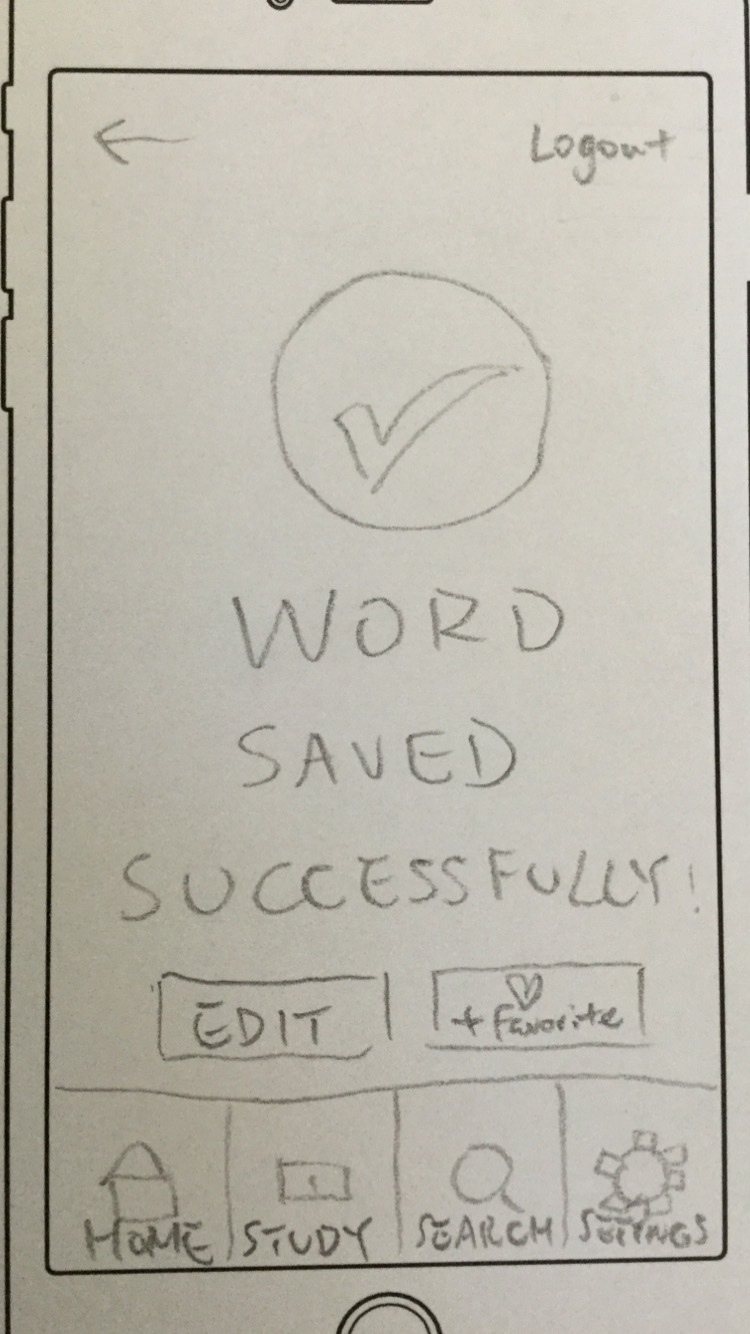 Logout
WORD
SAVED
SUCCESSFULLY!
EDIT
+ Favorite
HOME STUDY SEARCH SETTINGS